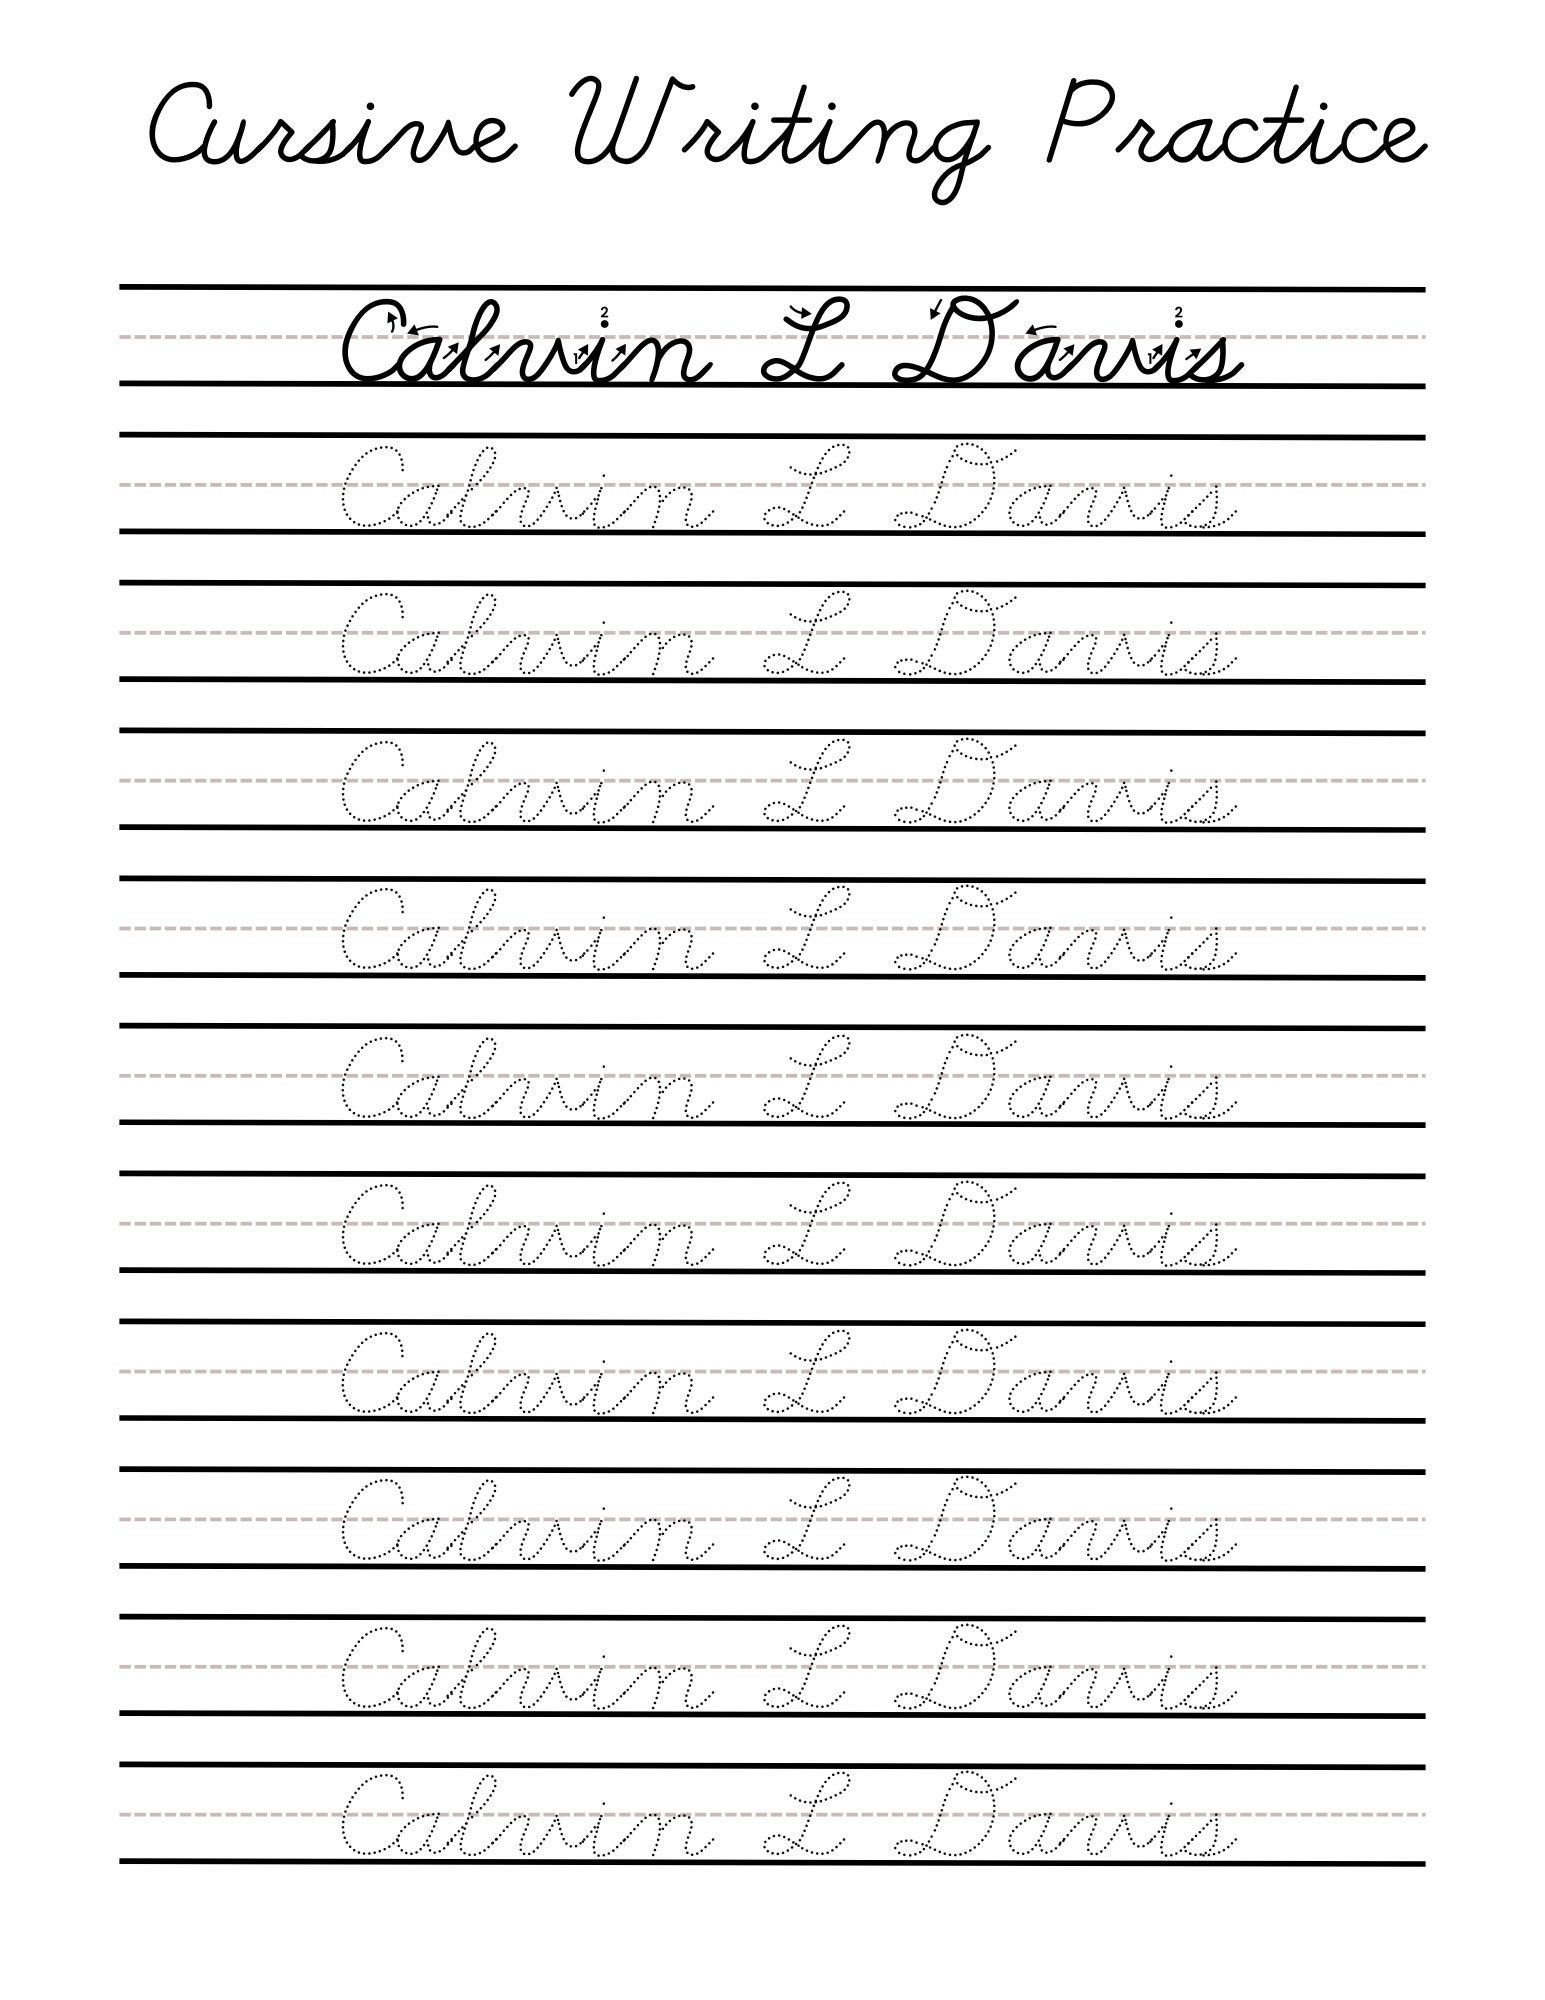 Cursive Writing Practice
Calvin L Davis
Calvin L Davis
Calvin L Davis
Calvin L Davis
Calvin L Davis
Calvin L Davis
Calvin L Davis
Calvin L Davis
Calvin L Davis
Calvin L Davis
Calvin L Davis